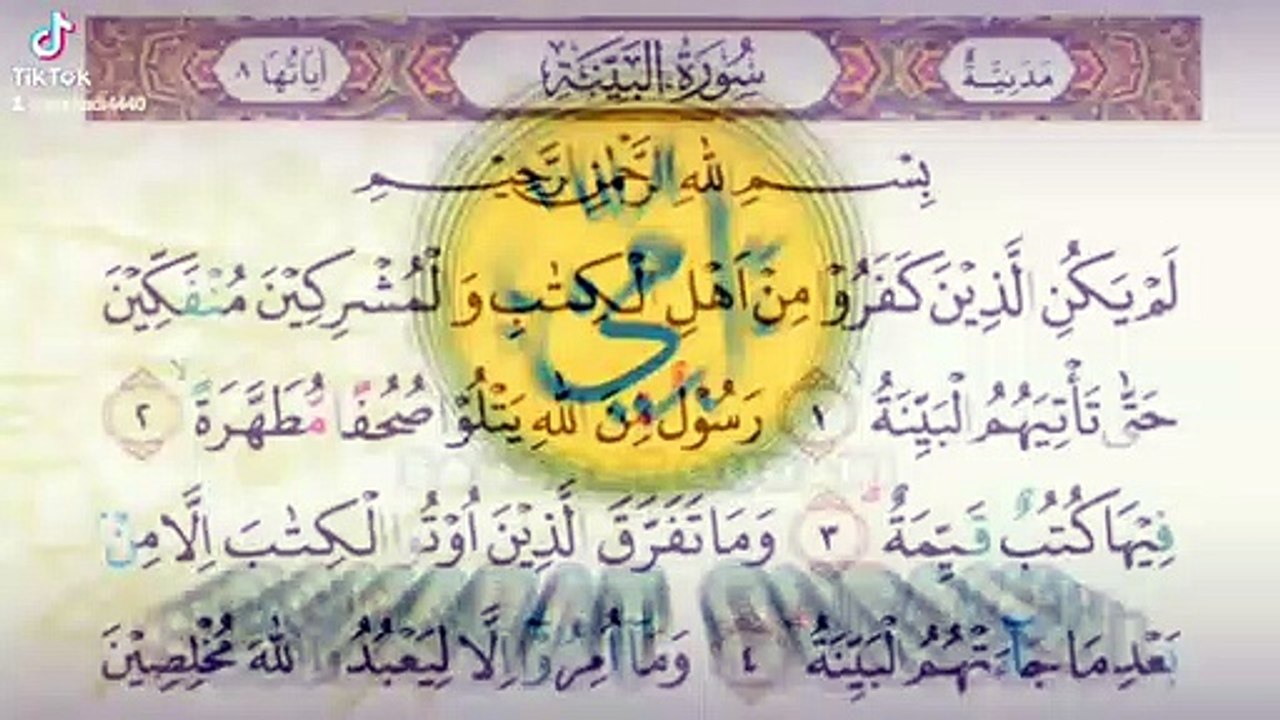 TikTok
مَدَنِيَّةٌ سُورَةُ الْبَيِّنَةِ اٰيَاتُهَا ٨
بِسْمِ للهِ الرَّحْمٰنِ رَّحِيْمِ
لَمْ يَكُنِ لَّذِيْنَ كَفَرُوْ مِنْ اَهْلِ لْكِتٰبِ وَ لْمُشْرِكِيْنَ مُنْفَكِّيْنَ
حَتّٰى تَأْتِيَهُمُ لْبَيِّنَةُ ١ رَسُوْلٌ مِّنَ للهِ يَتْلُوْا صُحُفًا مُّطَهَّرَةً ٢
فِيْهَا كُتُبٌ قَيِّمَةٌ ٣ وَمَا تَفَرَّقَ لَّذِيْنَ اُوْتُوا لْكِتٰبَ اِلَّا مِنْ
بَعْدِ مَا جَآءَتْهُمُ لْبَيِّنَةُ ٤ وَمَآ اُمِرُوْٓا اِلَّا لِيَعْبُدُوا للهَ مُخْلِصِيْنَ